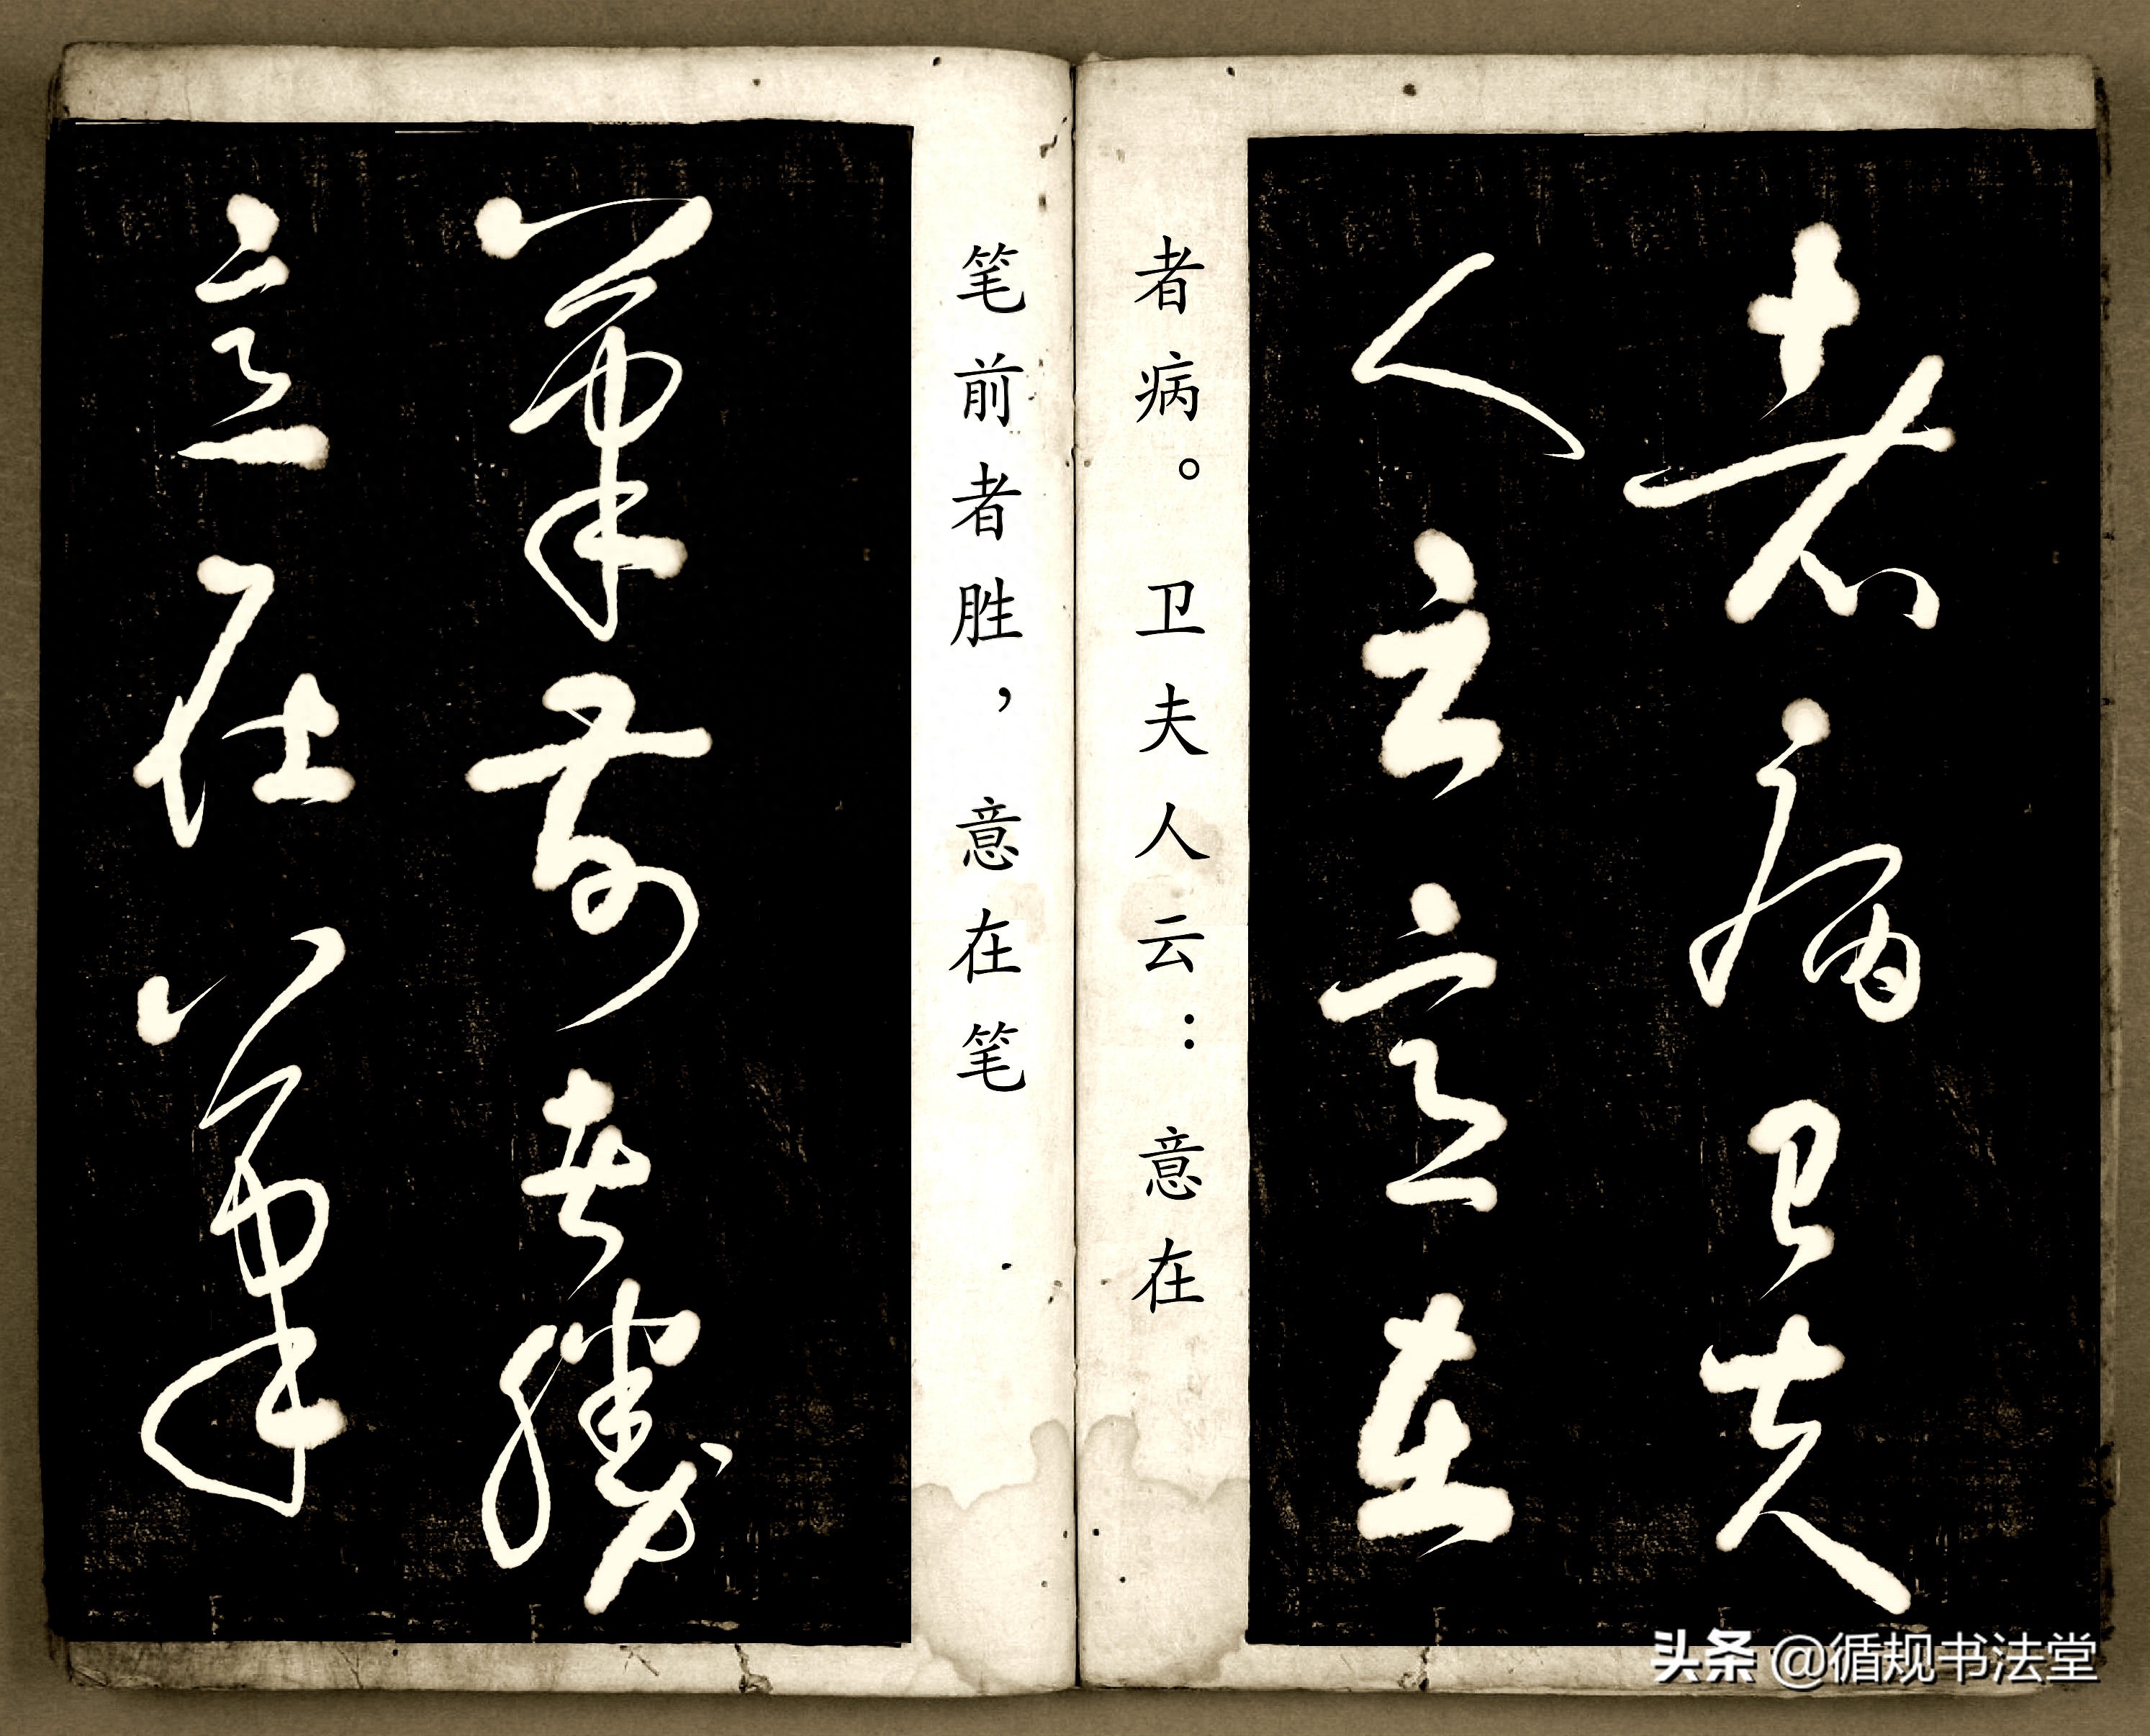 者病卫夫
人云意在
者病。卫夫人云：意在
笔前者胜，意在笔
筆前者勝
意在筆
头条 @循规书法堂